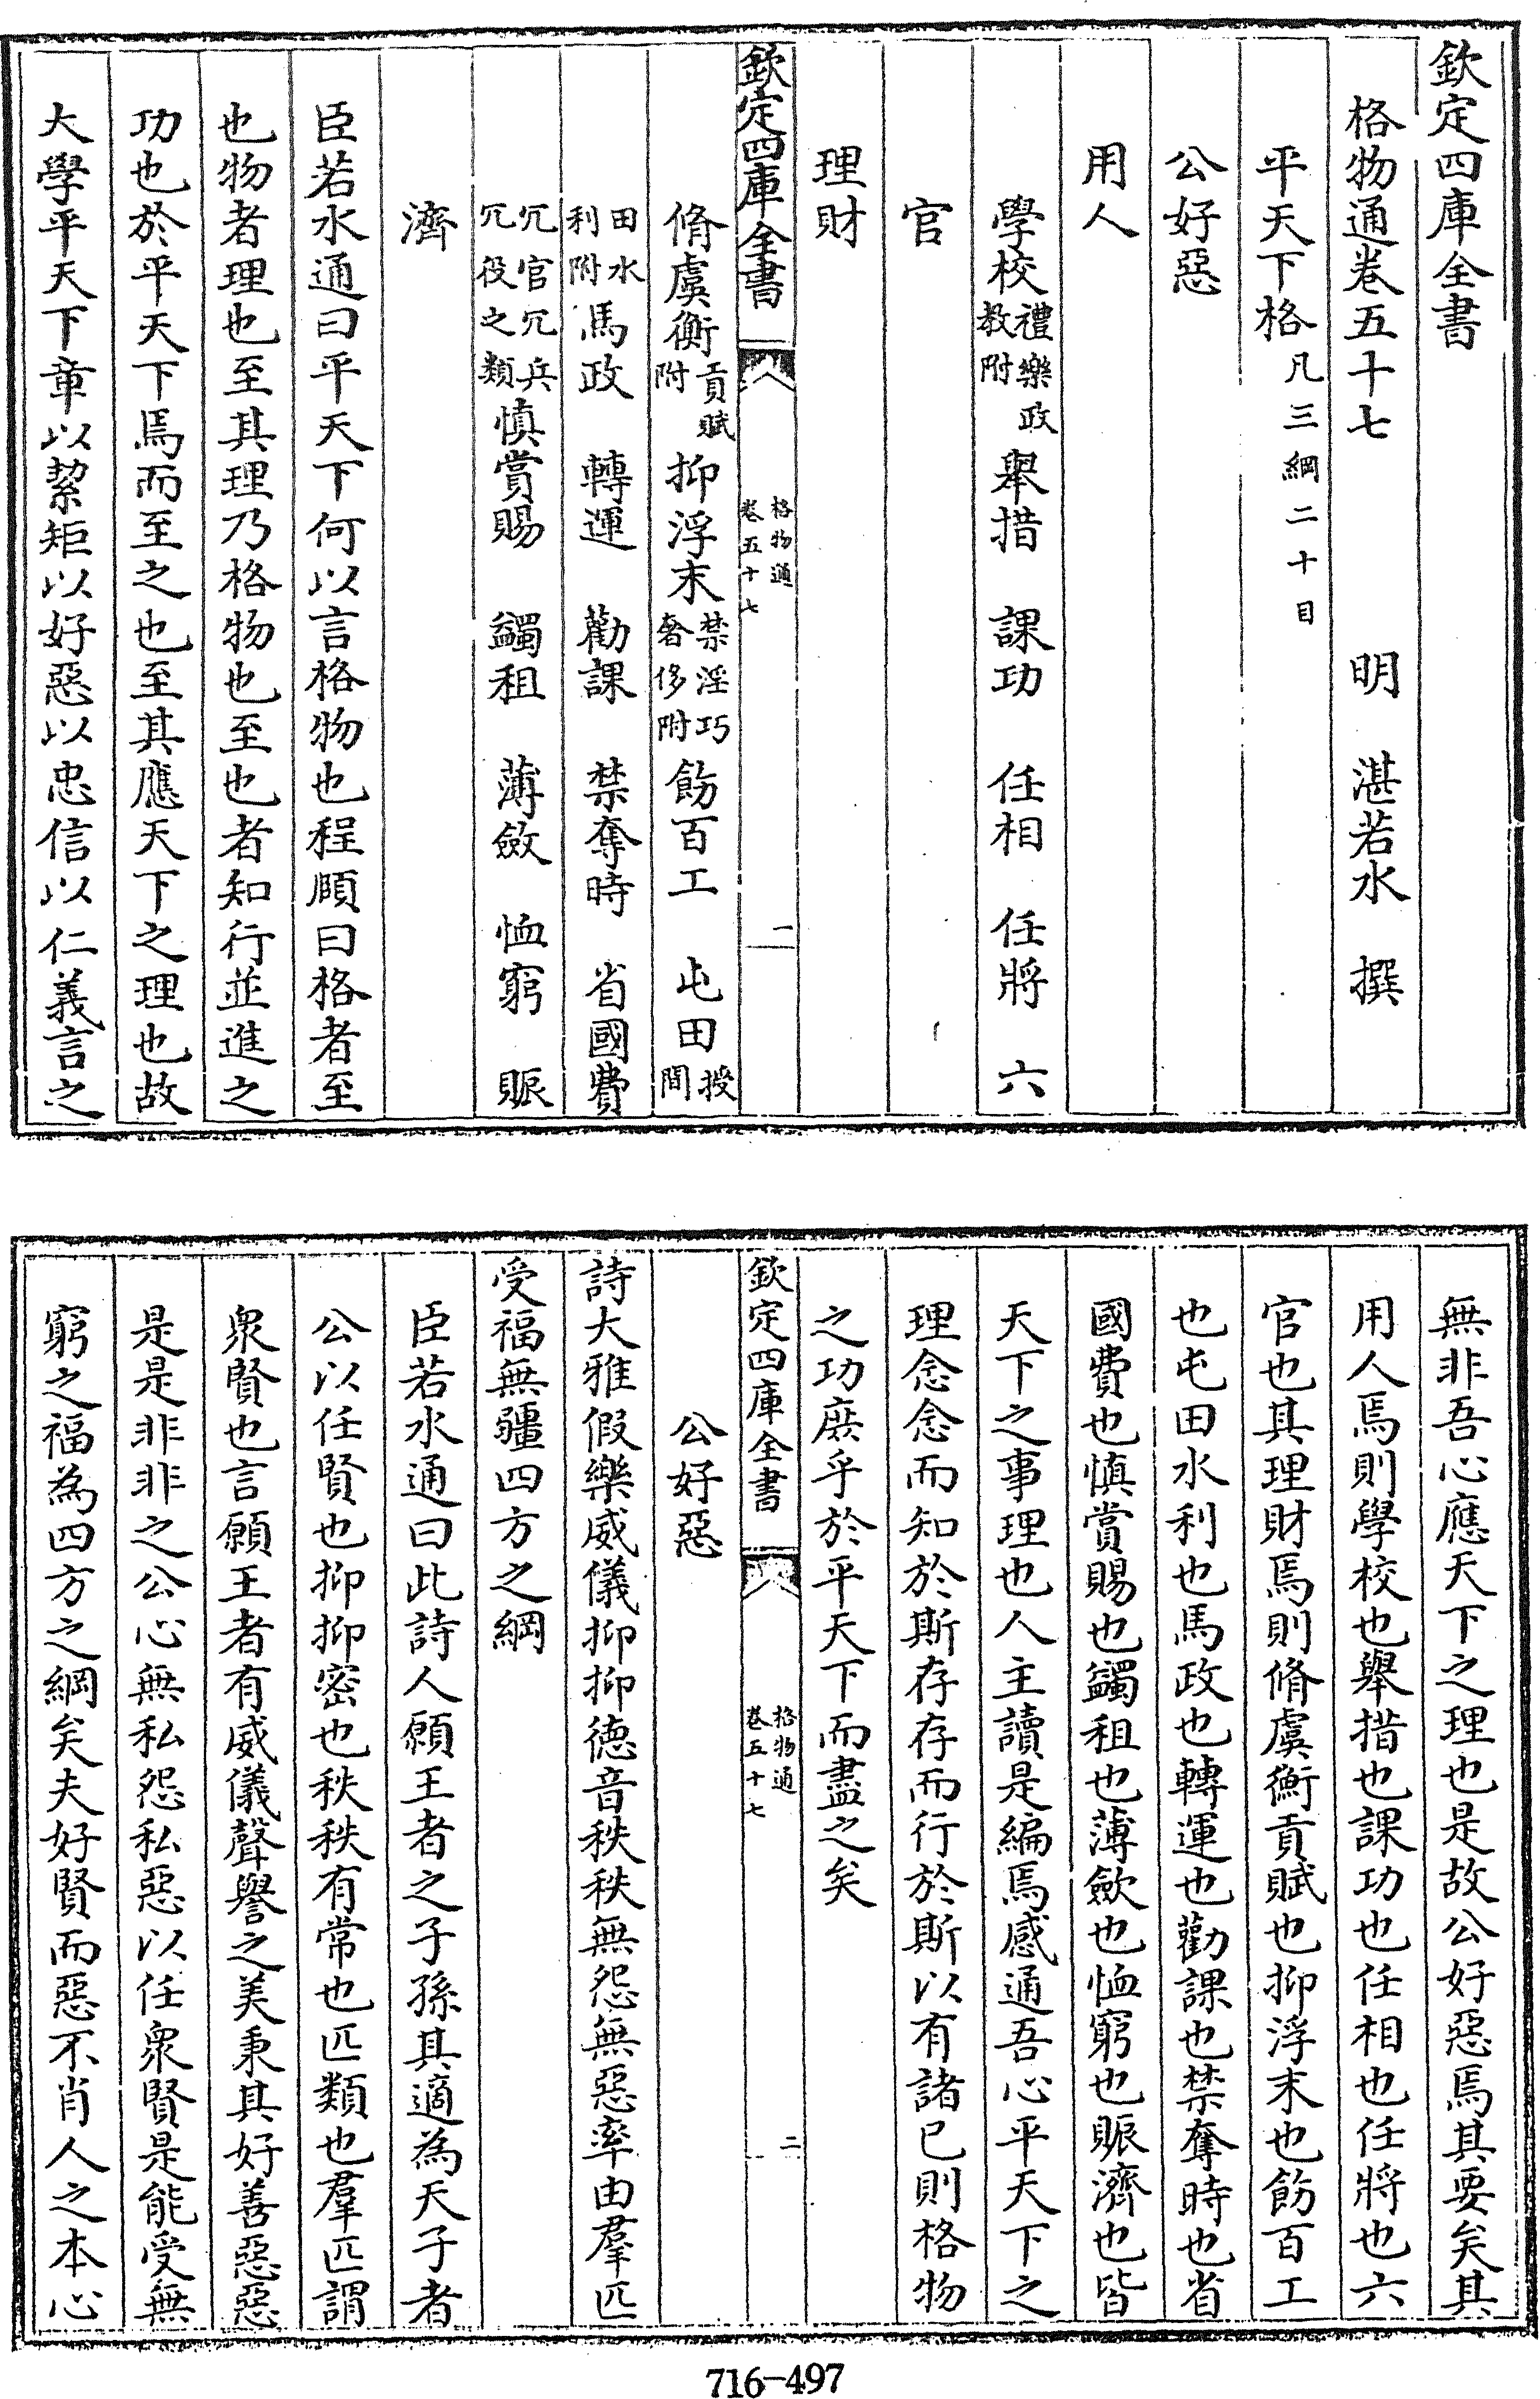 欽定四庫全書
格物通卷五十七
明 湛若水 撰
平天下格凡三綱二十目
公好惡
用人
學校禮樂政教附 舉措 課功 任相 任將 六
官
理財
欽定四庫全書 格物通卷五十七 一
脩虞衡貢賦附 抑浮末禁淫巧奢侈附 飭百工 屯田授間
田水利附 馬政 轉運 勸課 禁奪時 省國費
冗官冗兵冗役之類 慎賞賜 蠲租 薄斂 恤窮 賑
濟
臣若水通曰平天下何以言格物也程頤曰格者至
也物者理也至其理乃格物也至也者知行並進之
功也於平天下焉而至之也至其應天下之理也故
大學平天下章以絜矩以好惡以忠信以仁義言之
無非吾心應天下之理也是故公好惡焉其要矣其
用人焉則學校也舉措也課功也任相也任將也六
官也其理財焉則脩虞衡貢賦也抑浮末也飭百工
也屯田水利也馬政也轉運也勸課也禁奪時也省
國費也慎賞賜也蠲租也薄斂也恤窮也賑濟也皆
天下之事理也人主讀是編焉感通吾心平天下之
理念念而知於斯存存而行於斯以有諸已則格物
之功庶乎於平天下而盡之矣
欽定四庫全書 格物通卷五十七 二
公好惡
詩大雅假樂威儀抑抑德音秩秩無怨無惡率由羣匹
受福無疆四方之綱
臣若水通曰此詩人願王者之子孫其適為天子者
公以任賢也抑抑密也秩秩有常也匹類也羣匹謂
衆賢也言願王者有威儀聲譽之美秉其好善惡惡
是是非非之公心無私怨私惡以任衆賢是能受無
窮之福為四方之綱矣夫好賢而惡不肖人之本心
716-497